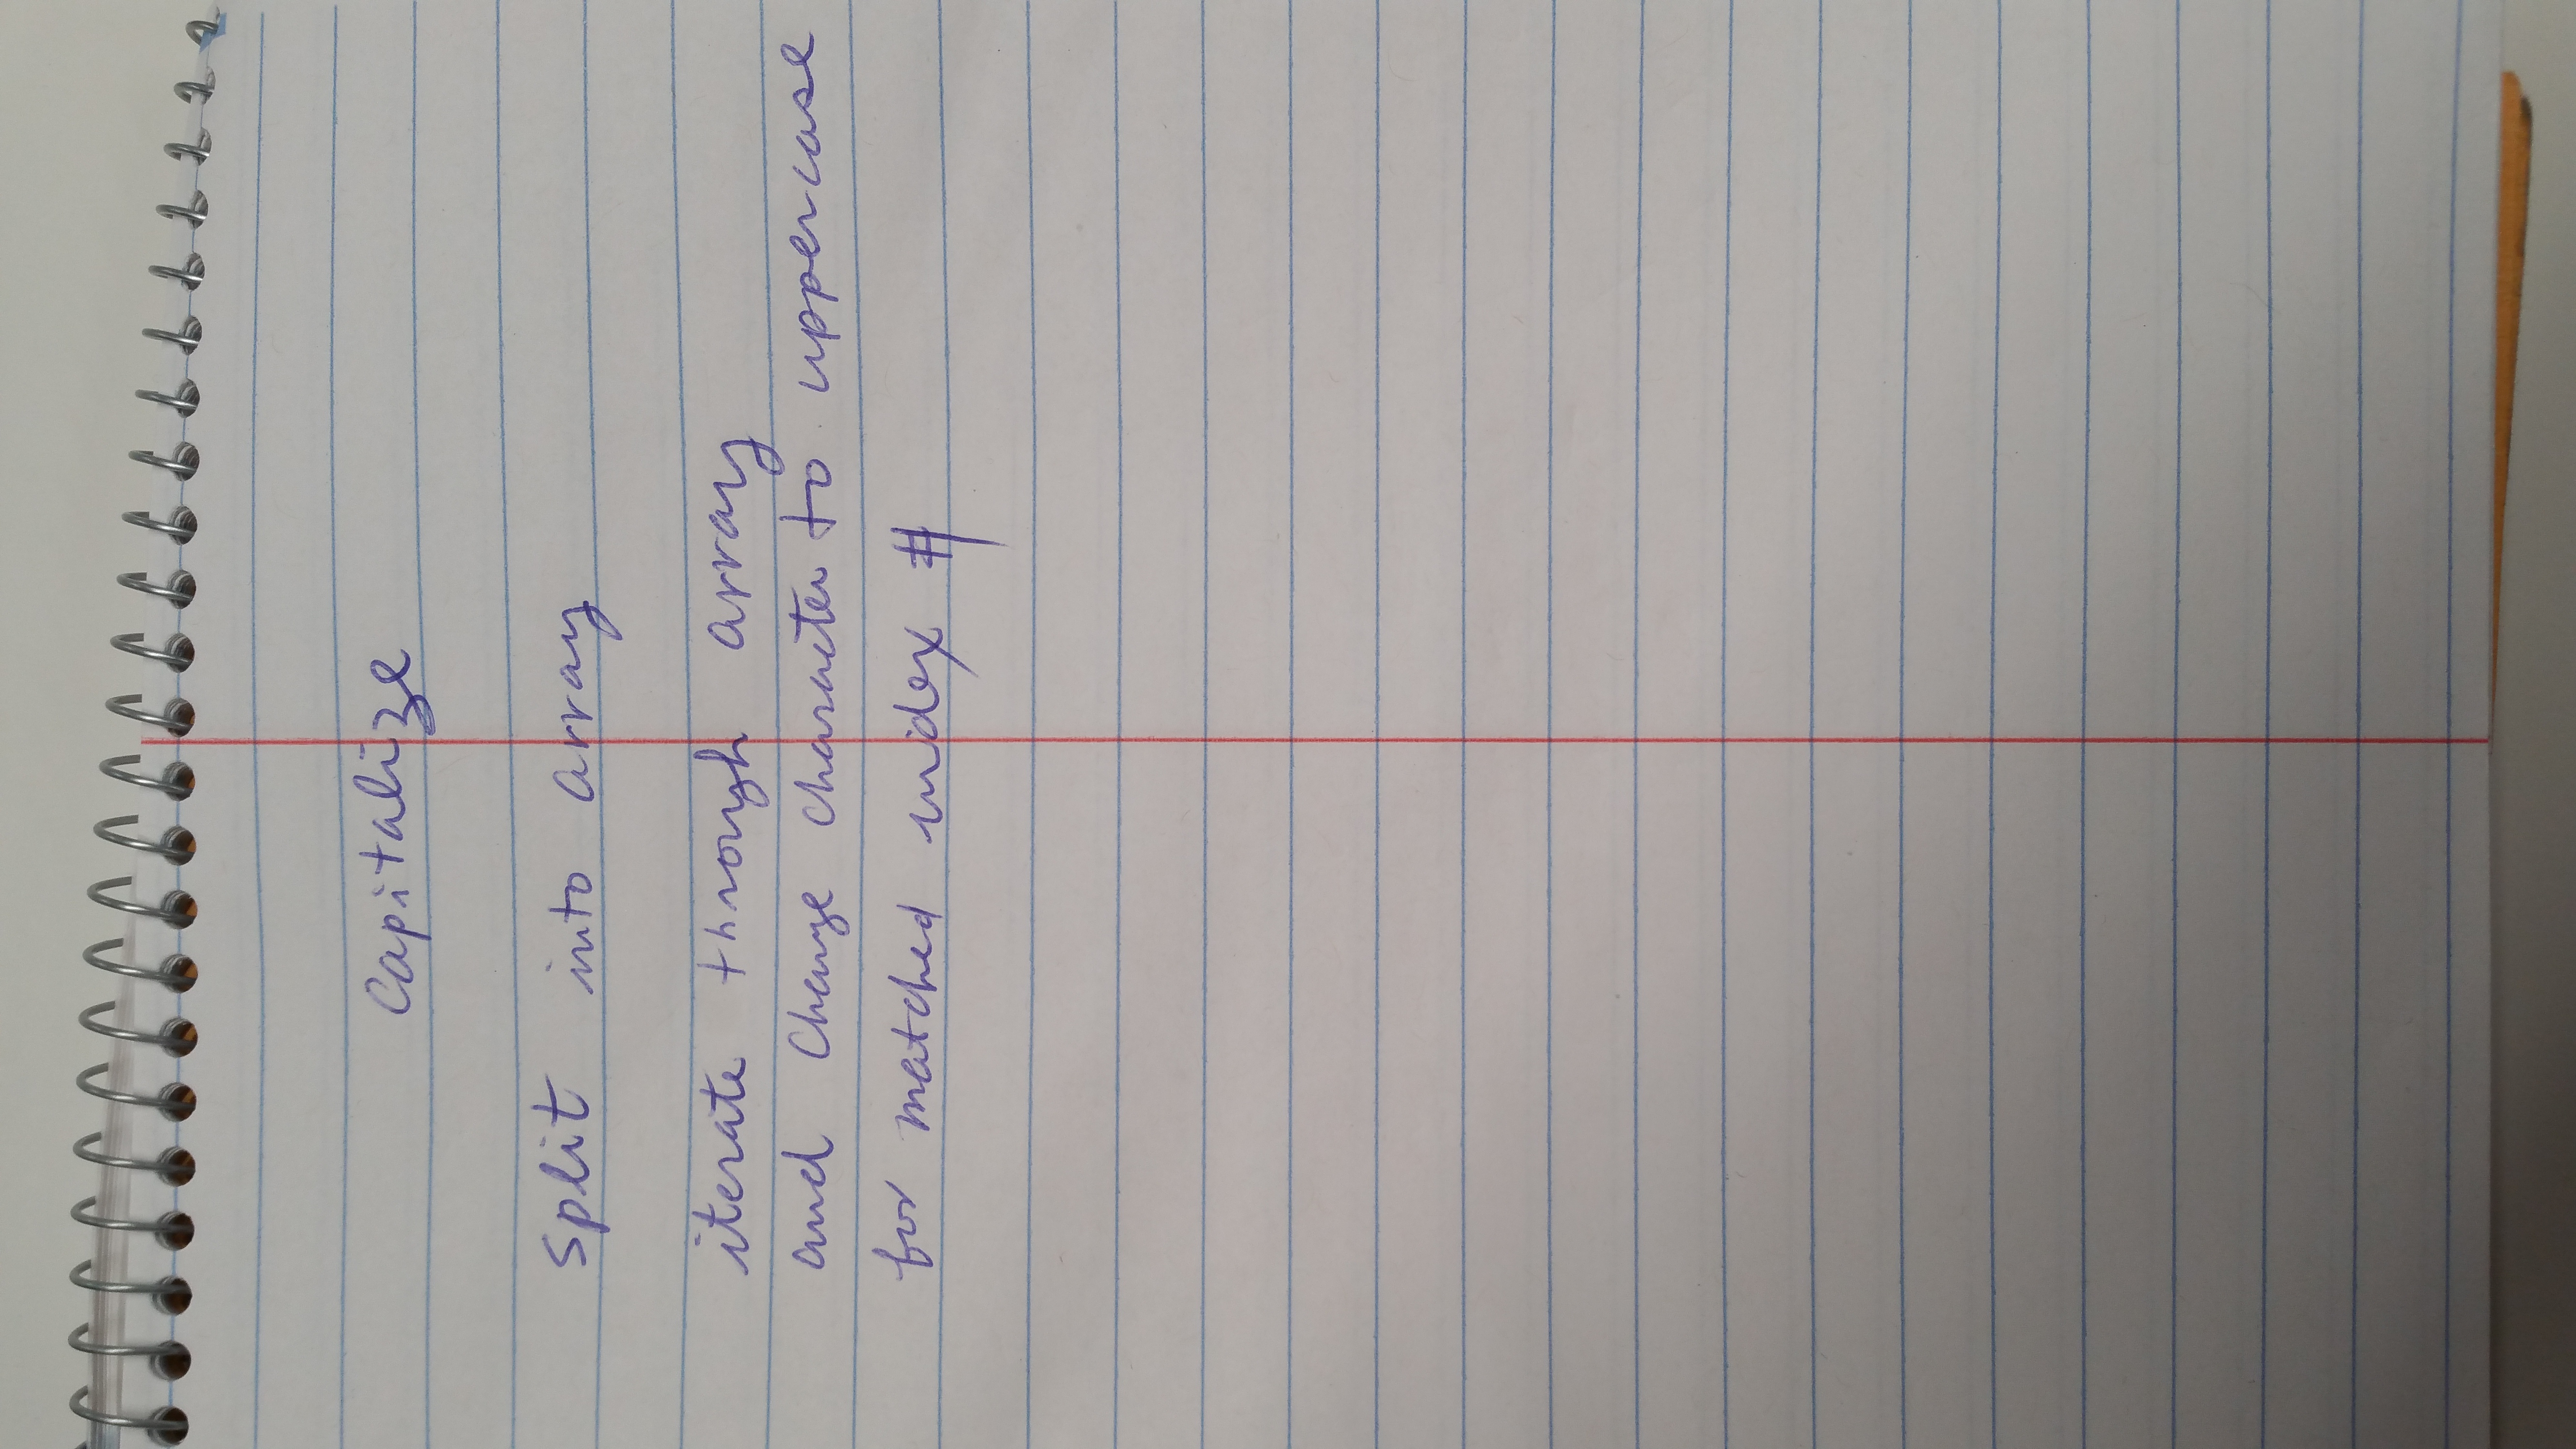 Capitalize
Split into array
iterate through array
and change character to uppercase
for matched index #